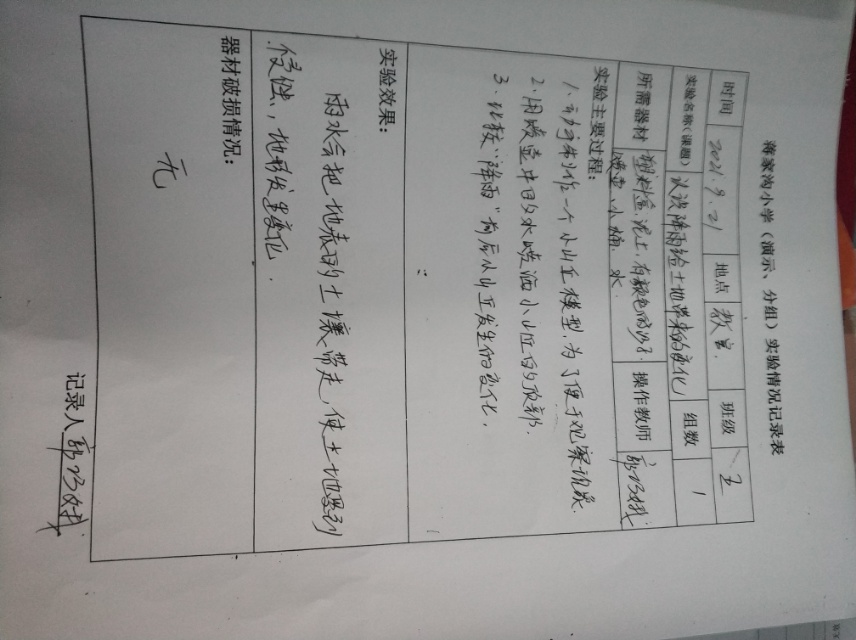 蒋家沟小学（演示、分组）实验情况记录表
时间 2021.9.21 地点 教室. 班级 五
实验名称（课题） 认识降雨给土地带来的变化 组数 1
所需器材 塑料盒、泥土、有颜色的沙子. 操作教师
喷壶、小桶、水.
实验主要过程：
1. 动手制作一个小山丘模型，为了便于观察现象.
2. 用喷壶中的水喷洒小山丘的顶部.
3. 比较“降雨”前后小山丘发生的变化.
实验效果：
雨水会把地表的土壤带走，使土地受到
侵蚀，地形发生变化.
器材破损情况：
无
记录人